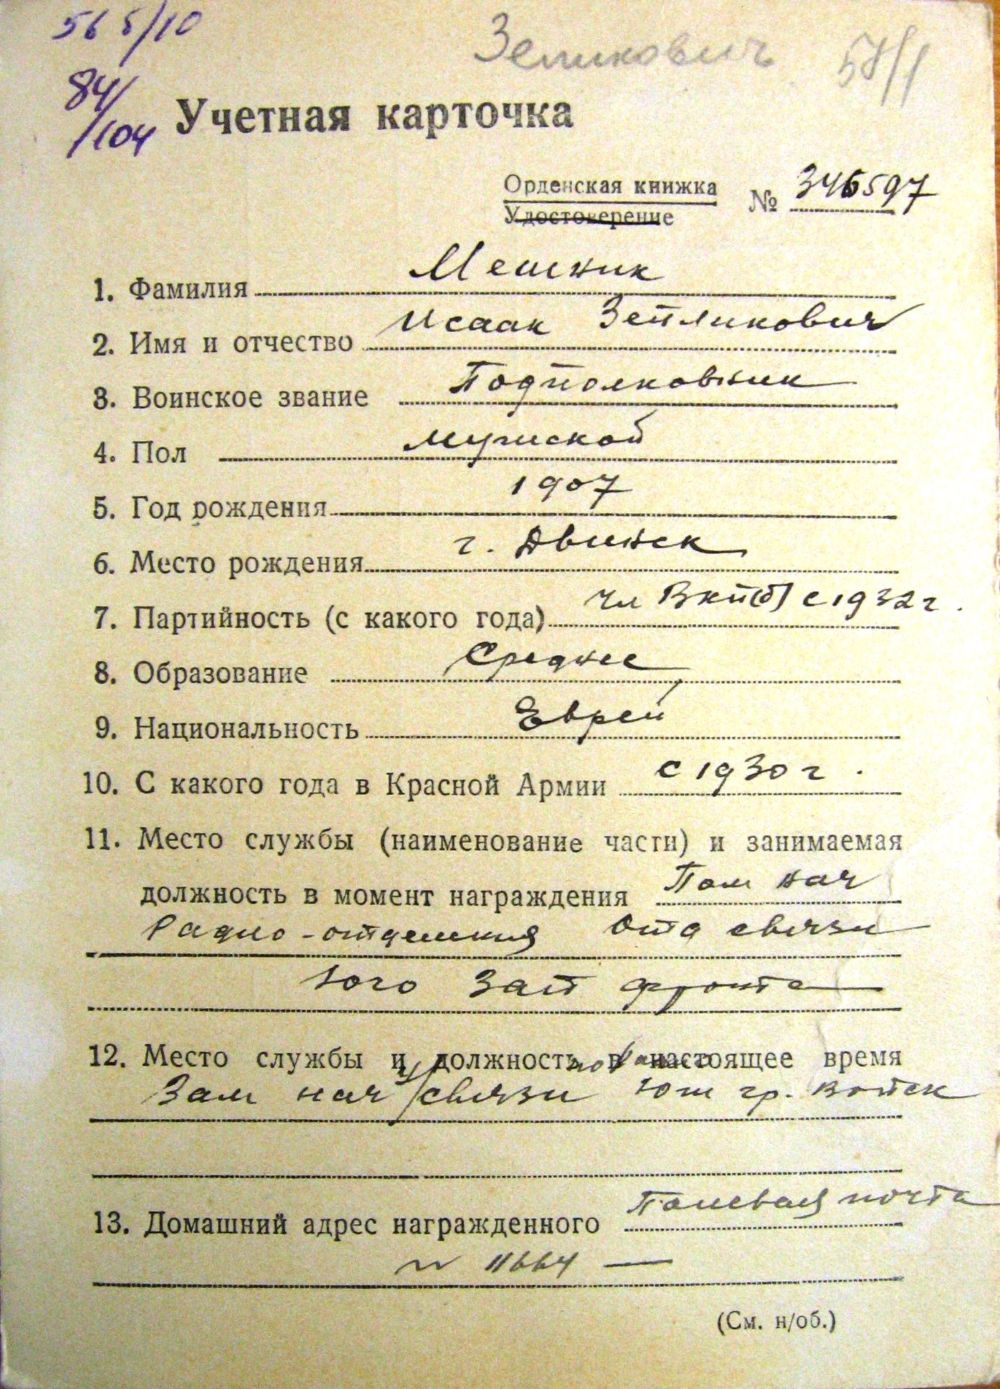 565/10
Зеликович 58/1
84/104
Учетная карточка
Орденская книжка
Удостоверение
№ 346597
1. Фамилия Мешник
2. Имя и отчество Исаак Зейликович
3. Воинское звание Подполковник
4. Пол мужской
5. Год рождения 1907
6. Место рождения г. Двинск
7. Партийность (с какого года) чл ВКП(б) с 1932 г.
8. Образование Среднее
9. Национальность Еврей
10. С какого года в Красной Армии с 1930 г.
11. Место службы (наименование части) и занимаемая
должность в момент награждения Пом нач
Радио-отделения Отд связи
Юго Зап фронта
12. Место службы и должность в настоящее время
Зам нач связи Юж гр. Войск
13. Домашний адрес награжденного Полевая почта
N 11664
(См. н/об.)